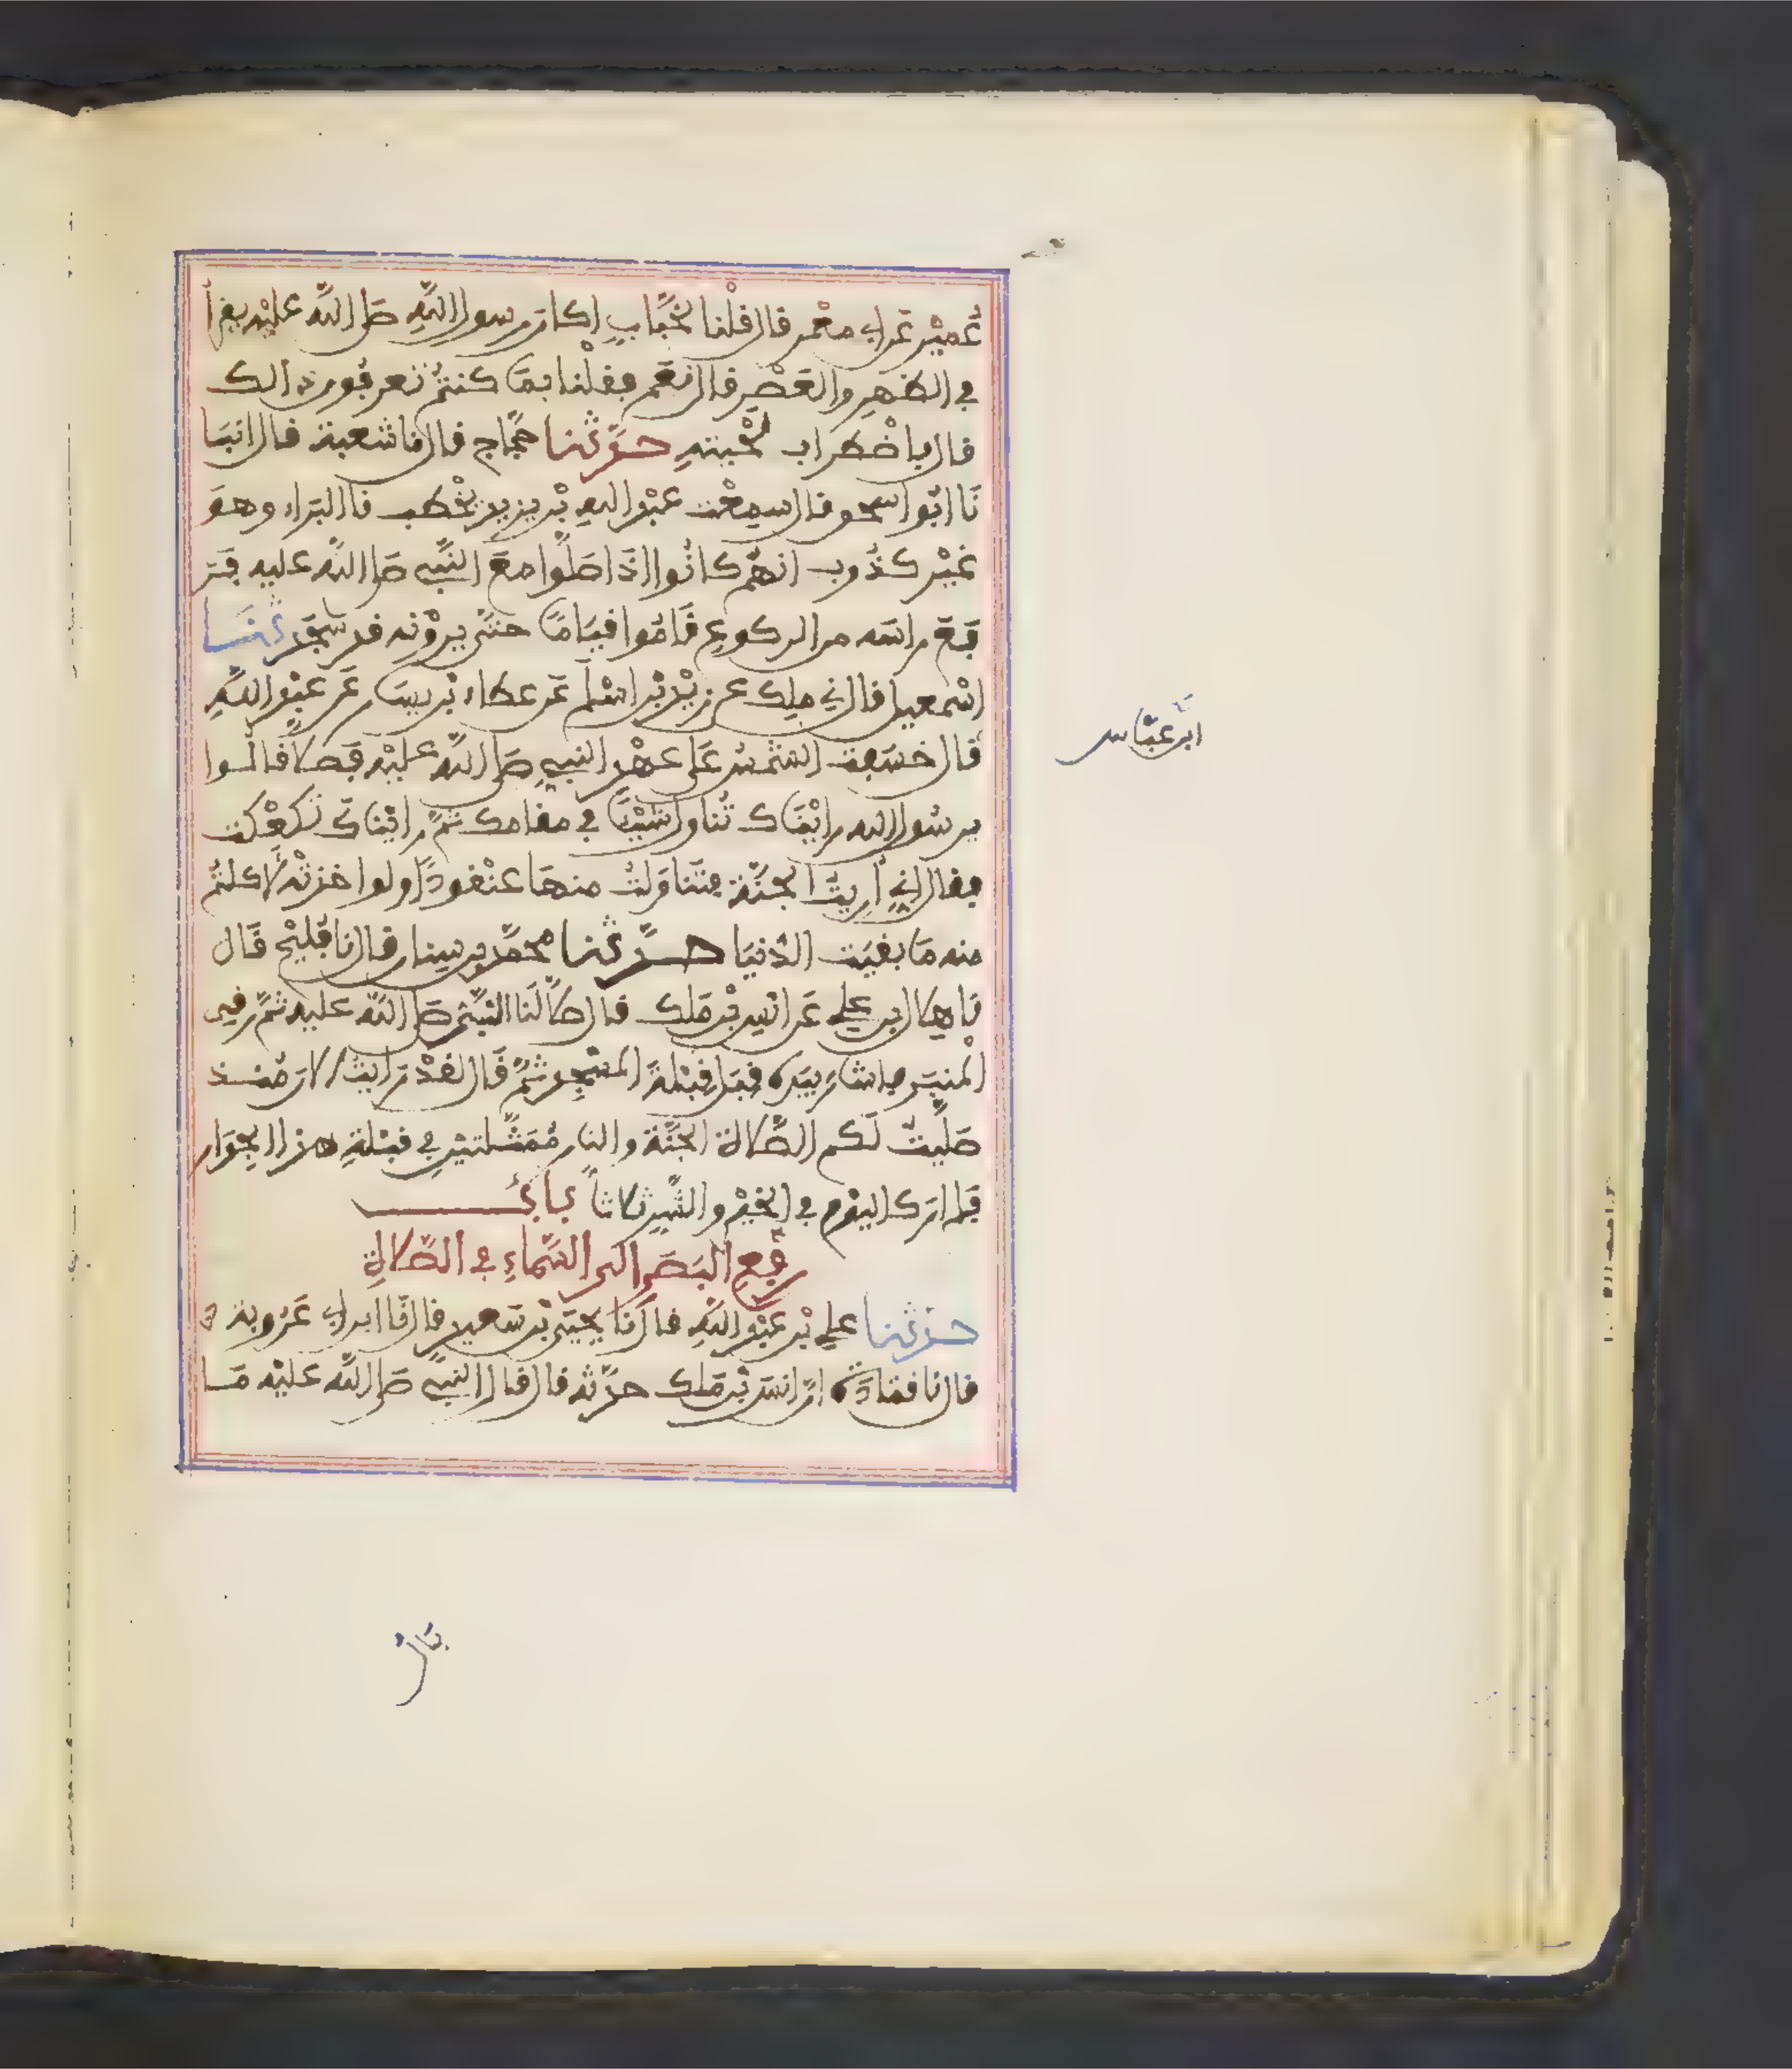 عُمَيْر عَن ابي مَعْمر قال قلْنا لخَبَّابٍ اكان رسول اللهِ صلى الله عليْه يقرأ
في الظهرِ والعَصْرِ قال نعَم فقلْنا بمَ كنتمْ تعرفُون ذالك
قال باضْطراب لحْيَتهِ حدّثنا حجّاج قال نا شعبة قال انبَا
نَا ابُو اسحٰو قال سمِعْت عبْد اللهِ بْن يزيد يخْطب قال البَراء وهوَ
غيْر كذُوب انهُم كانُوا اذَا صَلّوا معَ النَّبِي صلى الله عليه فرَ
فعَ راسَه من الركوعِ قَامُوا قيَامًا حتى يروْنه قد سجَد ثنَا
اسْمعيل قال ني ملِك عن زيْد بْن اسْلم عَن عطاء بْن يسَار عَن عبْد اللهِ
قال خسَفت الشمْسُ عَلى عهْد النبِيِ صلى الله عليْه فصلا قالوا
يرسُول الله رايْنَاك تناولْت شيْئًا في مقامك ثمّ رايْنَاك تكعْكعت
فقال اني أُريتُ الجنَّة فتناوَلتُ منهَا عنْقودًا ولو اخذتْه لأكلتمْ
منه مَا بقيَت الدُّنيَا حدّثنا محمّد بن سِنَان قال نا فُليْح قَال
نا هلال بن علي عَن انَس بْن مَلك قال صلّا لَنا النَّبِيُّ صلى الله عليه ثمّ رقى
المنبَر فاشَار بيَده قبَل قبْلة المسْجد ثمّ قَال لقدْ رَايتُ الان مُنْذ
صَليتُ لَكم الصَّلاة الجنَّة والنار مُمَثَّلتيْنِ في قبْلةِ هذا الجِدَار
فلم ارَ كاليَوْم في الخيْر والشَّر ثلاثاً بَابُ
رفْعِ البَصَرِ الى السَّماءِ في الصَّلاةِ
حدثنا علي بْن عبْد اللهِ قال نَا يحيَى بْن سَعيد قال نَا ابن ابي عَرُوبة
قال نا قتادَة انّ انَس بْن مَلك حدّثه قال قال النبي صلى الله عليْه مَا
ابن عبَّاس
بَال